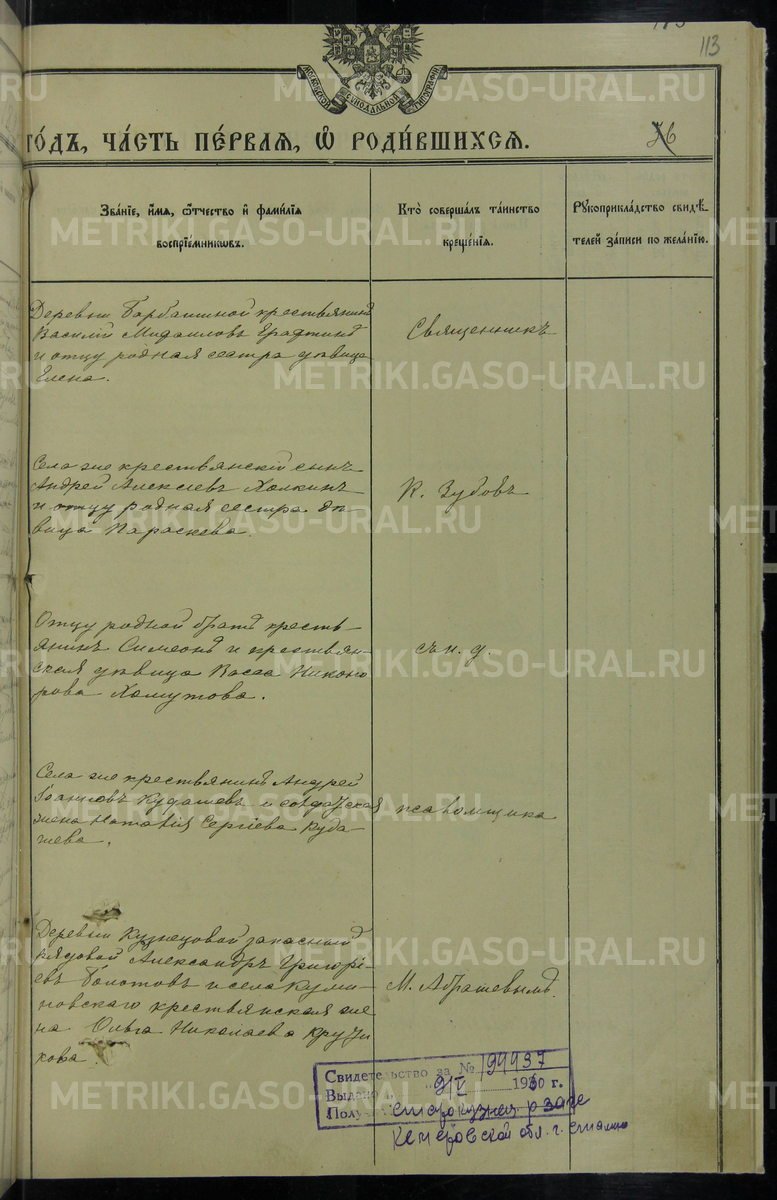 113
МОСКОВСКОЙ СѴНОДАЛЬНОЙ ТИПОГРАФІИ
ГО́ДЪ, ЧА́СТЬ ПЕ́РВАЯ, Ѡ҆ РОДИ́ВШИХСЯ.
Зва́нїе, и҆́мя, ѻ҆́тчество и҆ фами́лїя
воспрїе́мникѡвъ.
Кто̀ соверша́лъ та́инство
креще́нїя.
Рꙋкоприкла́дство свидѣ́-
телей за́писи по жела́нїю.
Деревни Барбашиной крестьянинъ
Василій Михаиловъ
и отцу родная сестра дѣвица
Елена.
Священникъ
Села сего крестьянскій сынъ
Андрей Алексіевъ Халкинъ
и отцу родная сестра дѣ-
вица Параскева.
К. Зубовъ
Отцу родной братъ кресть-
янинъ Симеонъ и крестьян-
ская дѣвица Васса Никоно-
рова Хомутова.
съ и. д.
Села сего крестьянинъ Андрей
Іоанновъ Кудашевъ и солдатская
жена Наталія Сергіева Куда-
шева.
псаломщика
Деревни Кузнецовой запасный
рядовой Александръ Григорі-
евъ Болотовъ и села Кули-
новскаго крестьянская же-
на Ольга Николаева Крути-
кова
М. Абрашевымъ.
Свидетельство за № 199937
Выдано "9/V" 1930 г.
Получ
Кемеровской обл. г.
METRIKI.GASO-URAL.RU